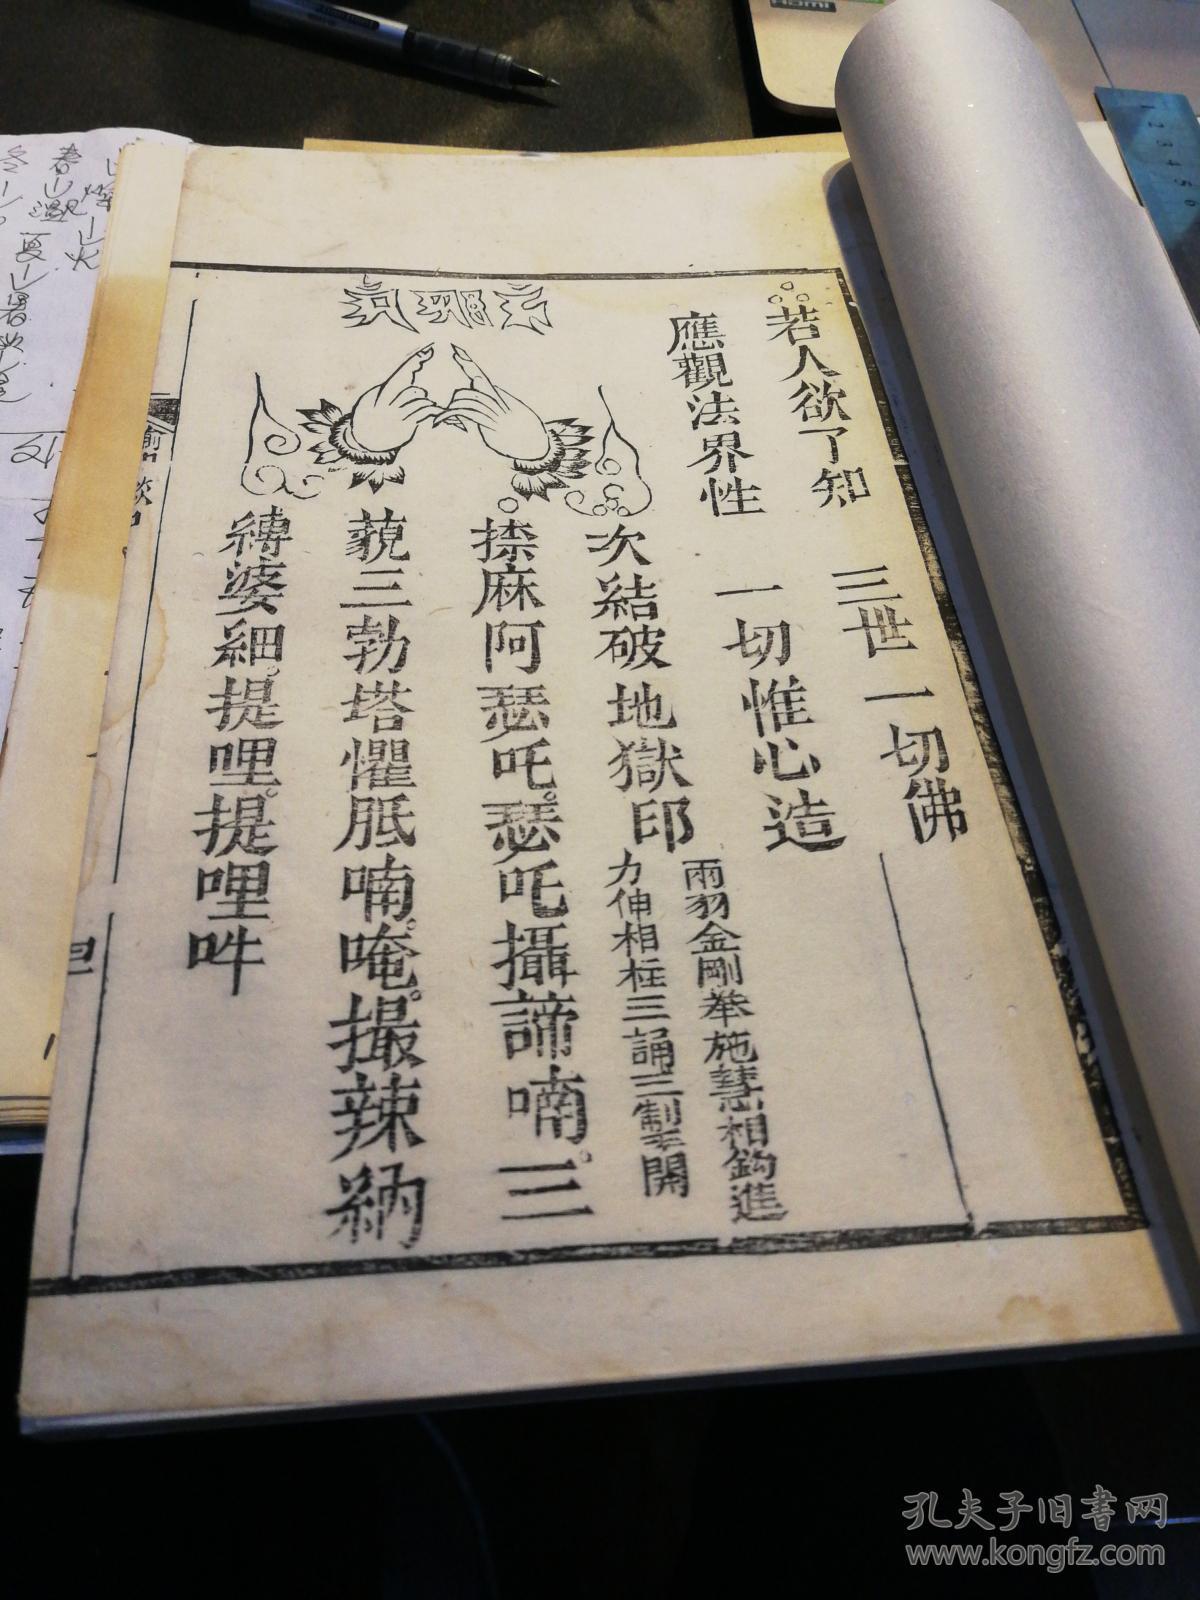 若人欲了知　三世一切佛
應觀法界性　一切惟心造
次結破地獄印
兩羽金剛拳施慧相鈎進
力伸相柱三誦三掣開
捺麻阿瑟吒。瑟吒攝諦喃。三
藐三勃塔懼胝喃。唵。撮辣納
縛婆細。提哩。提哩吽
孔夫子旧书网
www.kongfz.com